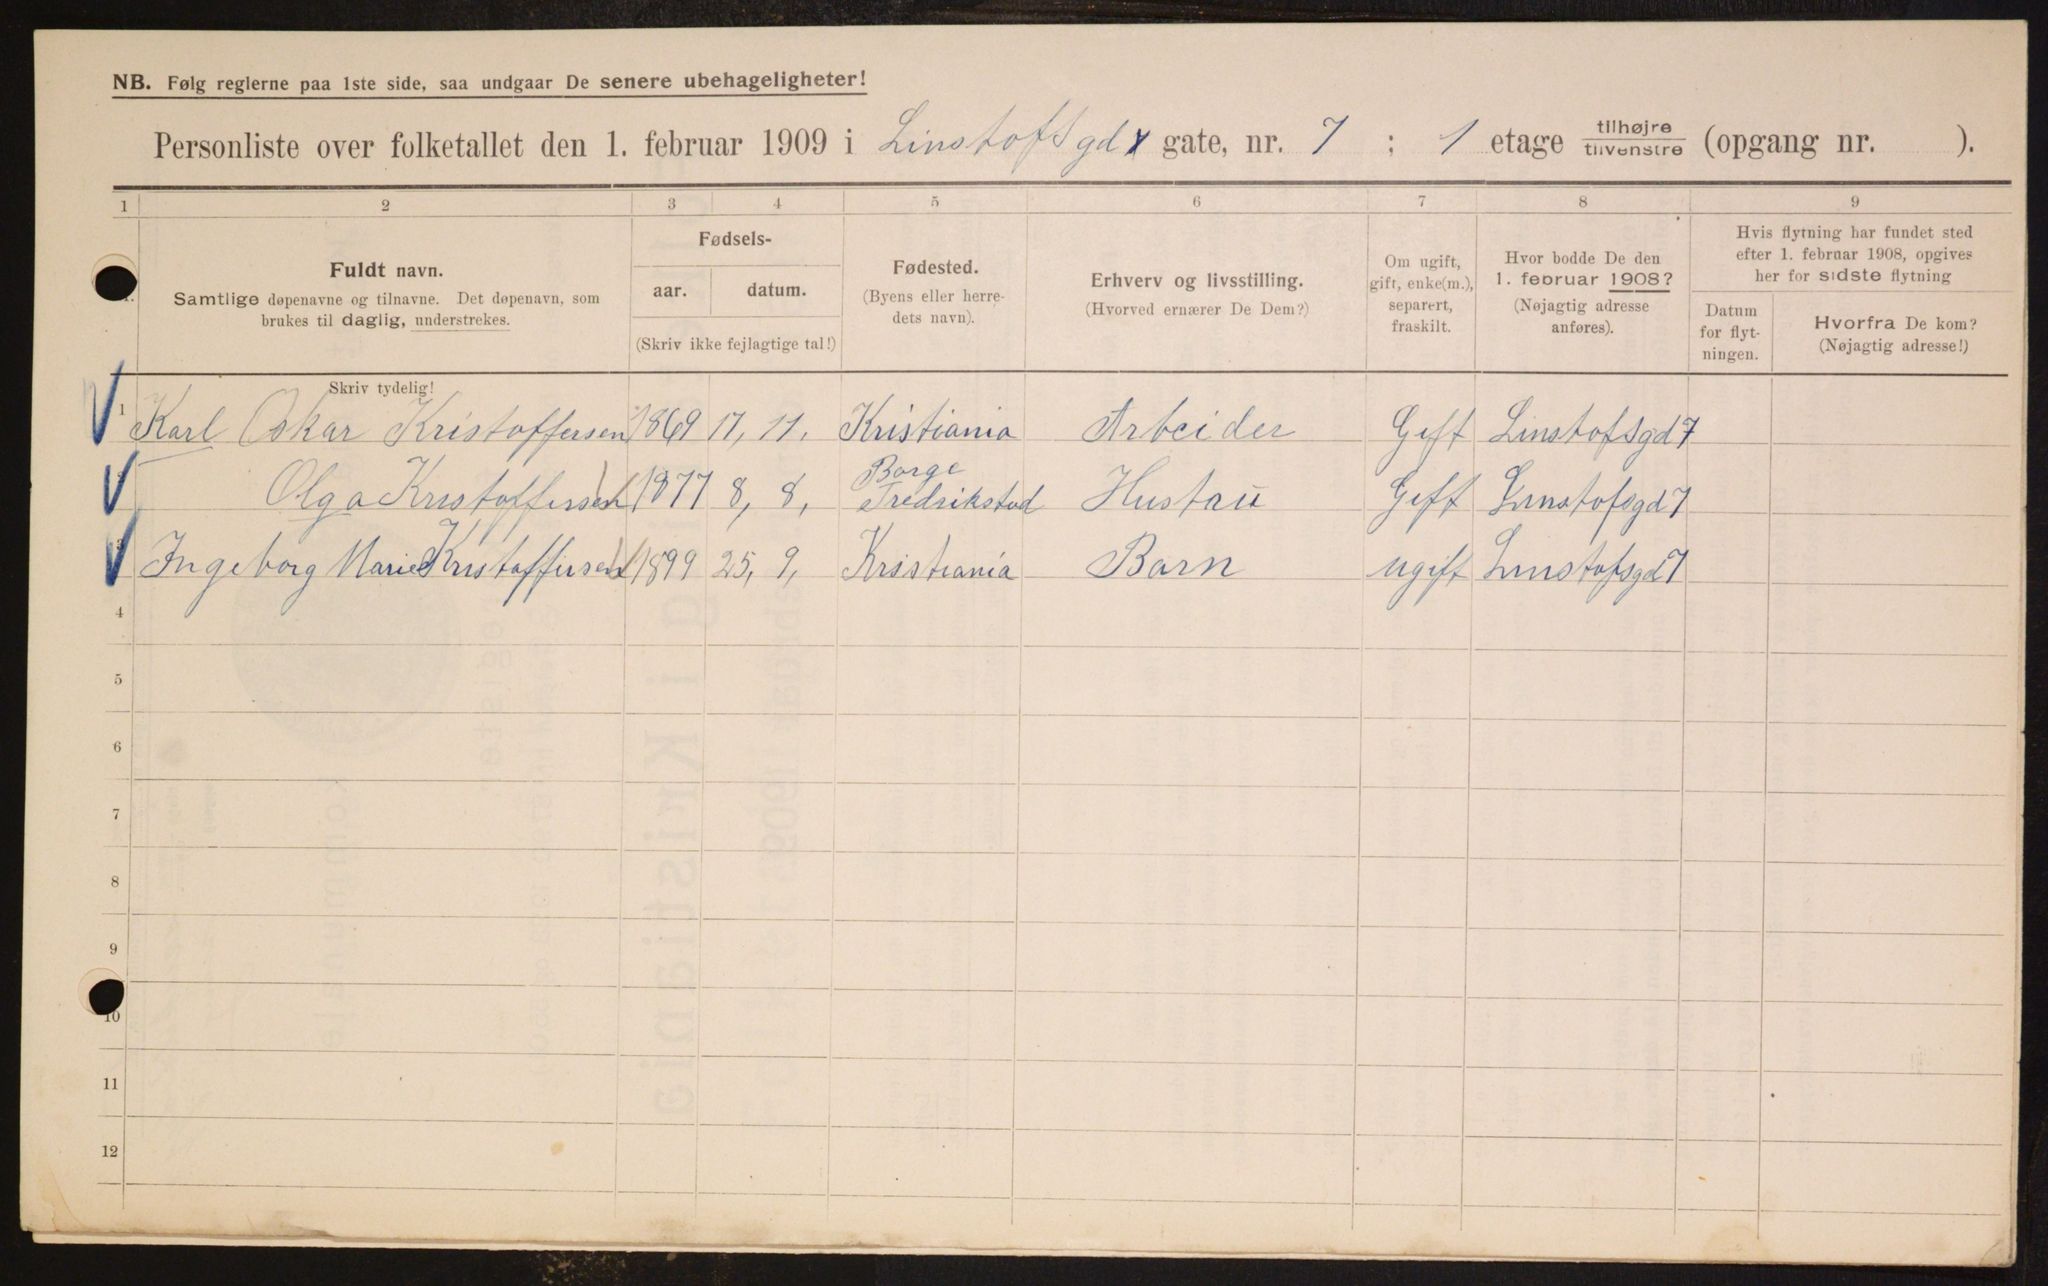 NB. Følg reglerne paa 1ste side, saa undgaar De senere ubehageligheter!
Personliste over folketallet den 1. februar 1909 i Linstofsgd gate, nr. 7 ; 1 etage tilhøjre tilvenstre (opgang nr. ).
1 2 3 4 5 6 7 8 9
Fuldt navn.
Samtlige døpenavne og tilnavne. Det døpenavn, som
brukes til daglig, understrekes.
Fødsels-
aar. datum.
(Skriv ikke fejlagtige tal!)
Fødested.
(Byens eller herre-
dets navn).
Erhverv og livsstilling.
(Hvorved ernærer De Dem?)
Om ugift,
gift, enke(m.),
separert,
fraskilt.
Hvor bodde De den
1. februar 1908?
(Nøjagtig adresse
anføres).
Hvis flytning har fundet sted
efter 1. februar 1908, opgives
her for sidste flytning
Datum
for flyt-
ningen.
Hvorfra De kom?
(Nøjagtig adresse!)
Skriv tydelig!
1 Karl Oskar Kristoffersen 1869 17, 11, Kristiania Arbeider Gift Linstofsgd 7
Olga Kristoffersen 1877 8, 8, Borge Fredrikstad Hustru Gift Linstofsgd 7
3 Ingeborg Marie Kristoffersen 1899 25, 9, Kristiania Barn ugift Linstofsgd 7
4
5
6
7
8
9
10
11
12